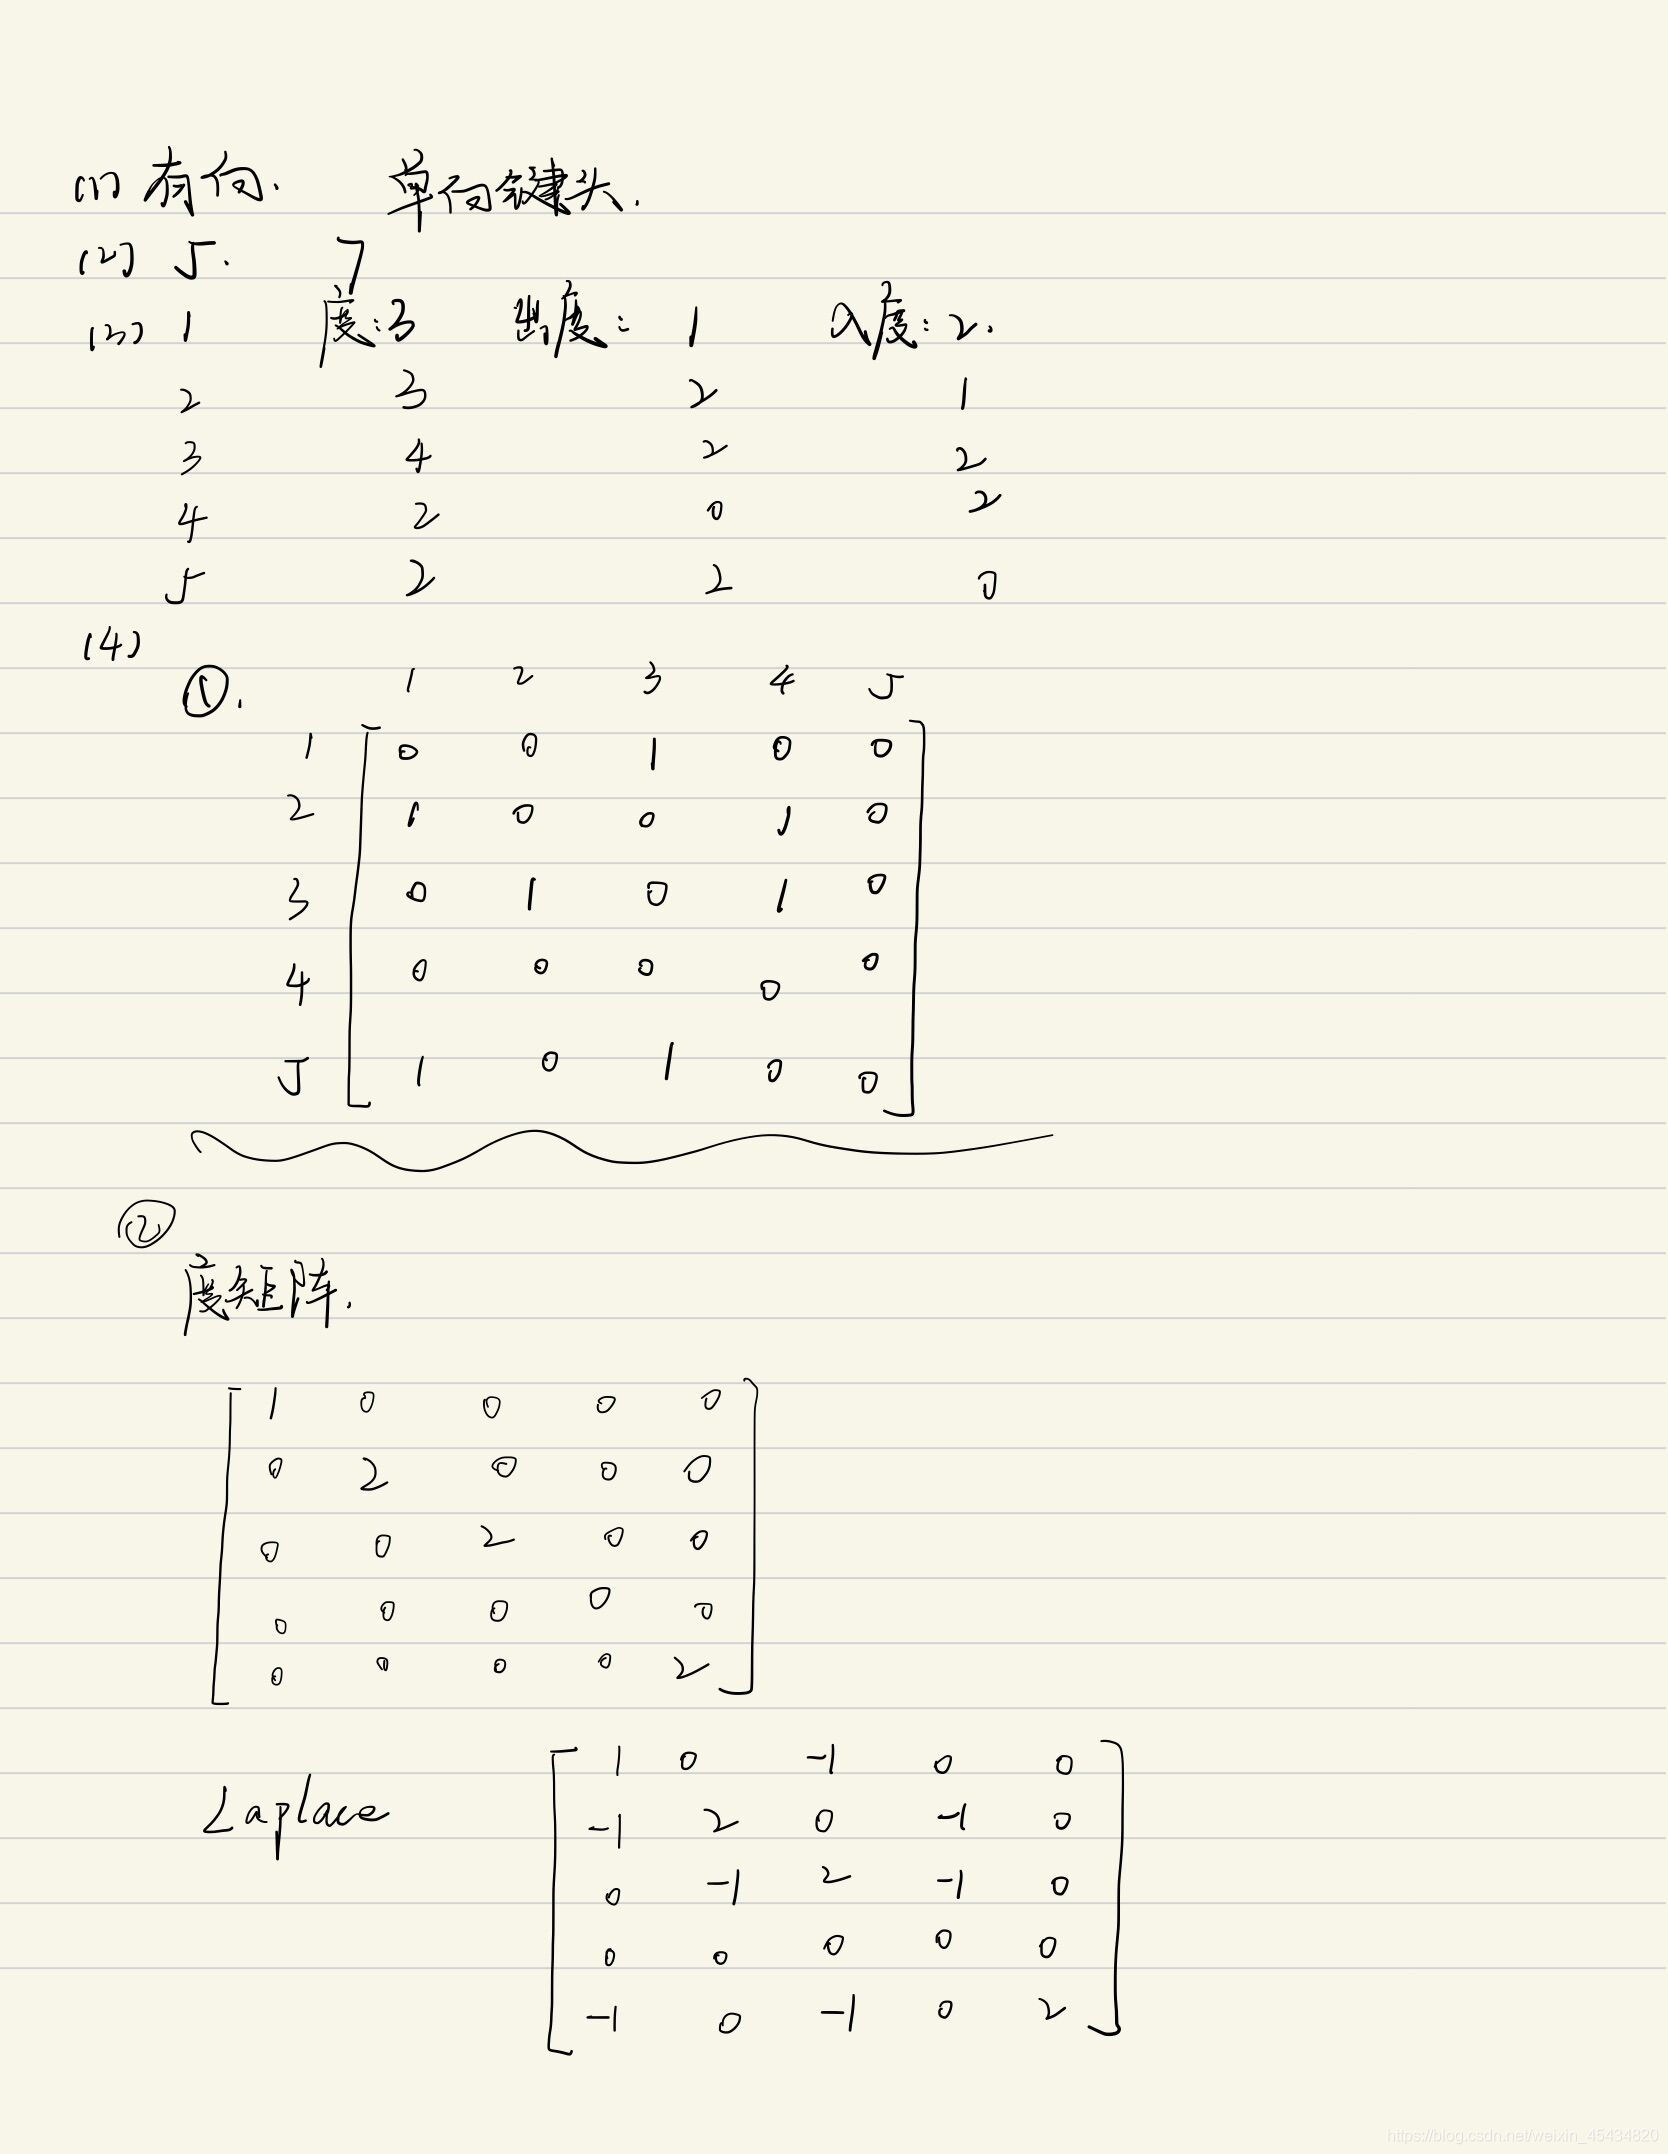 (1) 有向. 单向键头.
(2) 5. 7
(3) 1 度:3 出度: 1 入度: 2.
2 3 2 1
3 4 2 2
4 2 0 2
5 2 2 0
(4)
①. 1 2 3 4 5
1 0 0 1 0 0
2 1 0 0 1 0
3 0 1 0 1 0
4 0 0 0 0 0
5 1 0 1 0 0
②
度矩阵.
1 0 0 0 0
0 2 0 0 0
0 0 2 0 0
0 0 0 0 0
0 0 0 0 2
Laplace
1 0 -1 0 0
-1 2 0 -1 0
0 -1 2 -1 0
0 0 0 0 0
-1 0 -1 0 2
https://blog.csdn.net/weixin_45434820